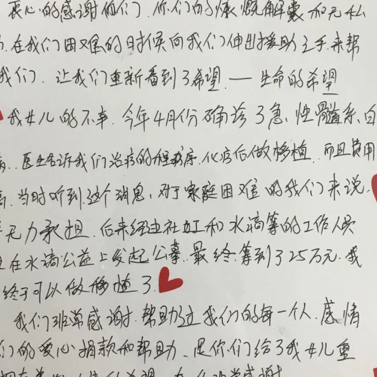 衷心的感谢你们，你们的慷慨解囊和无私
在我们困难的时候向我们伸出援助之手来帮
我们，让我们重新看到了希望——生命的希望
我女儿的不幸，今年4月份确诊了急性髓系白
医生告诉我们治疗的程序，化疗后做移植，而且费用
当时听到这个消息，对于家庭困难的我们来说，
无力承担，后来经过社工和水滴筹的工作人员
在水滴公益上发起公募，最终筹到了25万元，我
终于可以做移植了
我们非常感谢，帮助过我们的每一个人，感情
们的爱心捐款和帮助，是你们给了我女儿重